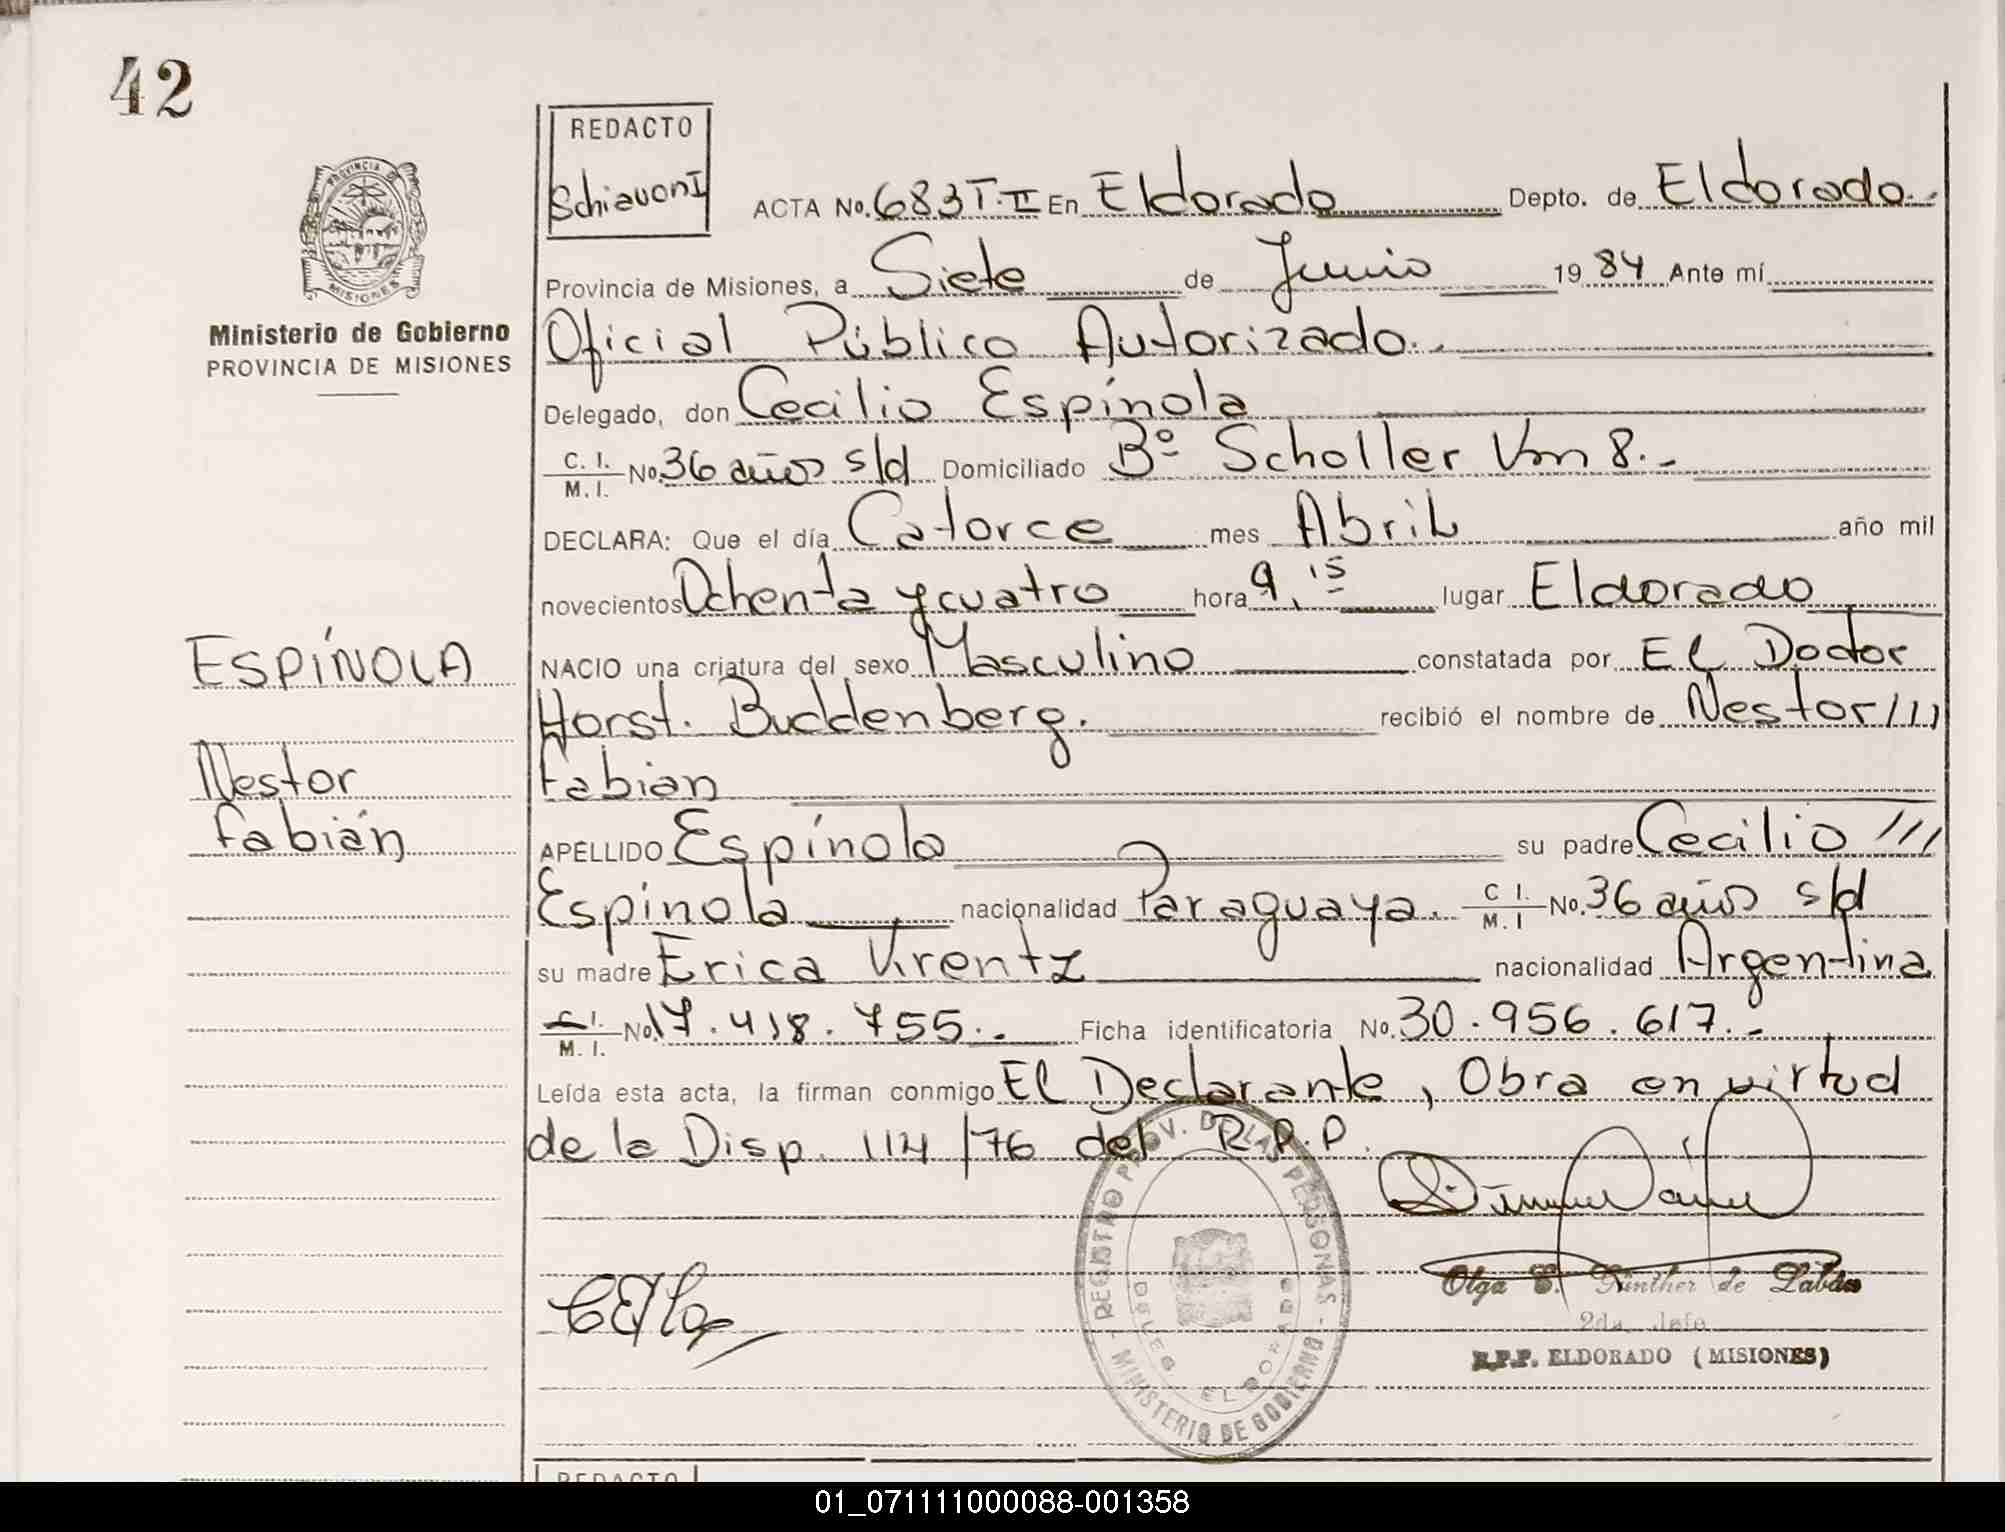 42
REDACTO
Schiavoni
PROVINCIA DE
MISIONES
Ministerio de Gobierno
PROVINCIA DE MISIONES
ACTA No. 683 T. II En Eldorado Depto. de Eldorado.-
Provincia de Misiones, a Siete de Junio 19 84 Ante mí
Oficial Público Autorizado.-
Delegado, don Cecilio Espínola
C. I.
M. I. No. 36 años s/d Domiciliado Bº Scholler Km 8.-
DECLARA: Que el día Catorce mes Abril año mil
novecientos Ochenta y cuatro hora 9,15 lugar Eldorado
NACIO una criatura del sexo Masculino constatada por El Doctor
Horst. Buddenberg. recibió el nombre de Nestor///
Fabian
APELLIDO Espínola su padre Cecilio ///
Espínola nacionalidad Paraguaya. C I. M. I No. 36 años s/d
su madre Erica Krentz nacionalidad Argentina
C. I.
M. I. No. 17.418.755.- Ficha identificatoria No. 30.956.617.-
Leída esta acta, la firman conmigo El Declarante, Obra en virtud
de la Disp. 114/76 del R.P.P.
ESPÍNOLA
Nestor
Fabián
REGISTRO PROV. DE LAS PERSONAS - MINISTERIO DE GOBIERNO -
DELEG. ELDORADO
Olga E. de
2da. Jefe
R.P.P. ELDORADO (MISIONES)
REDACTO
01_071111000088-001358